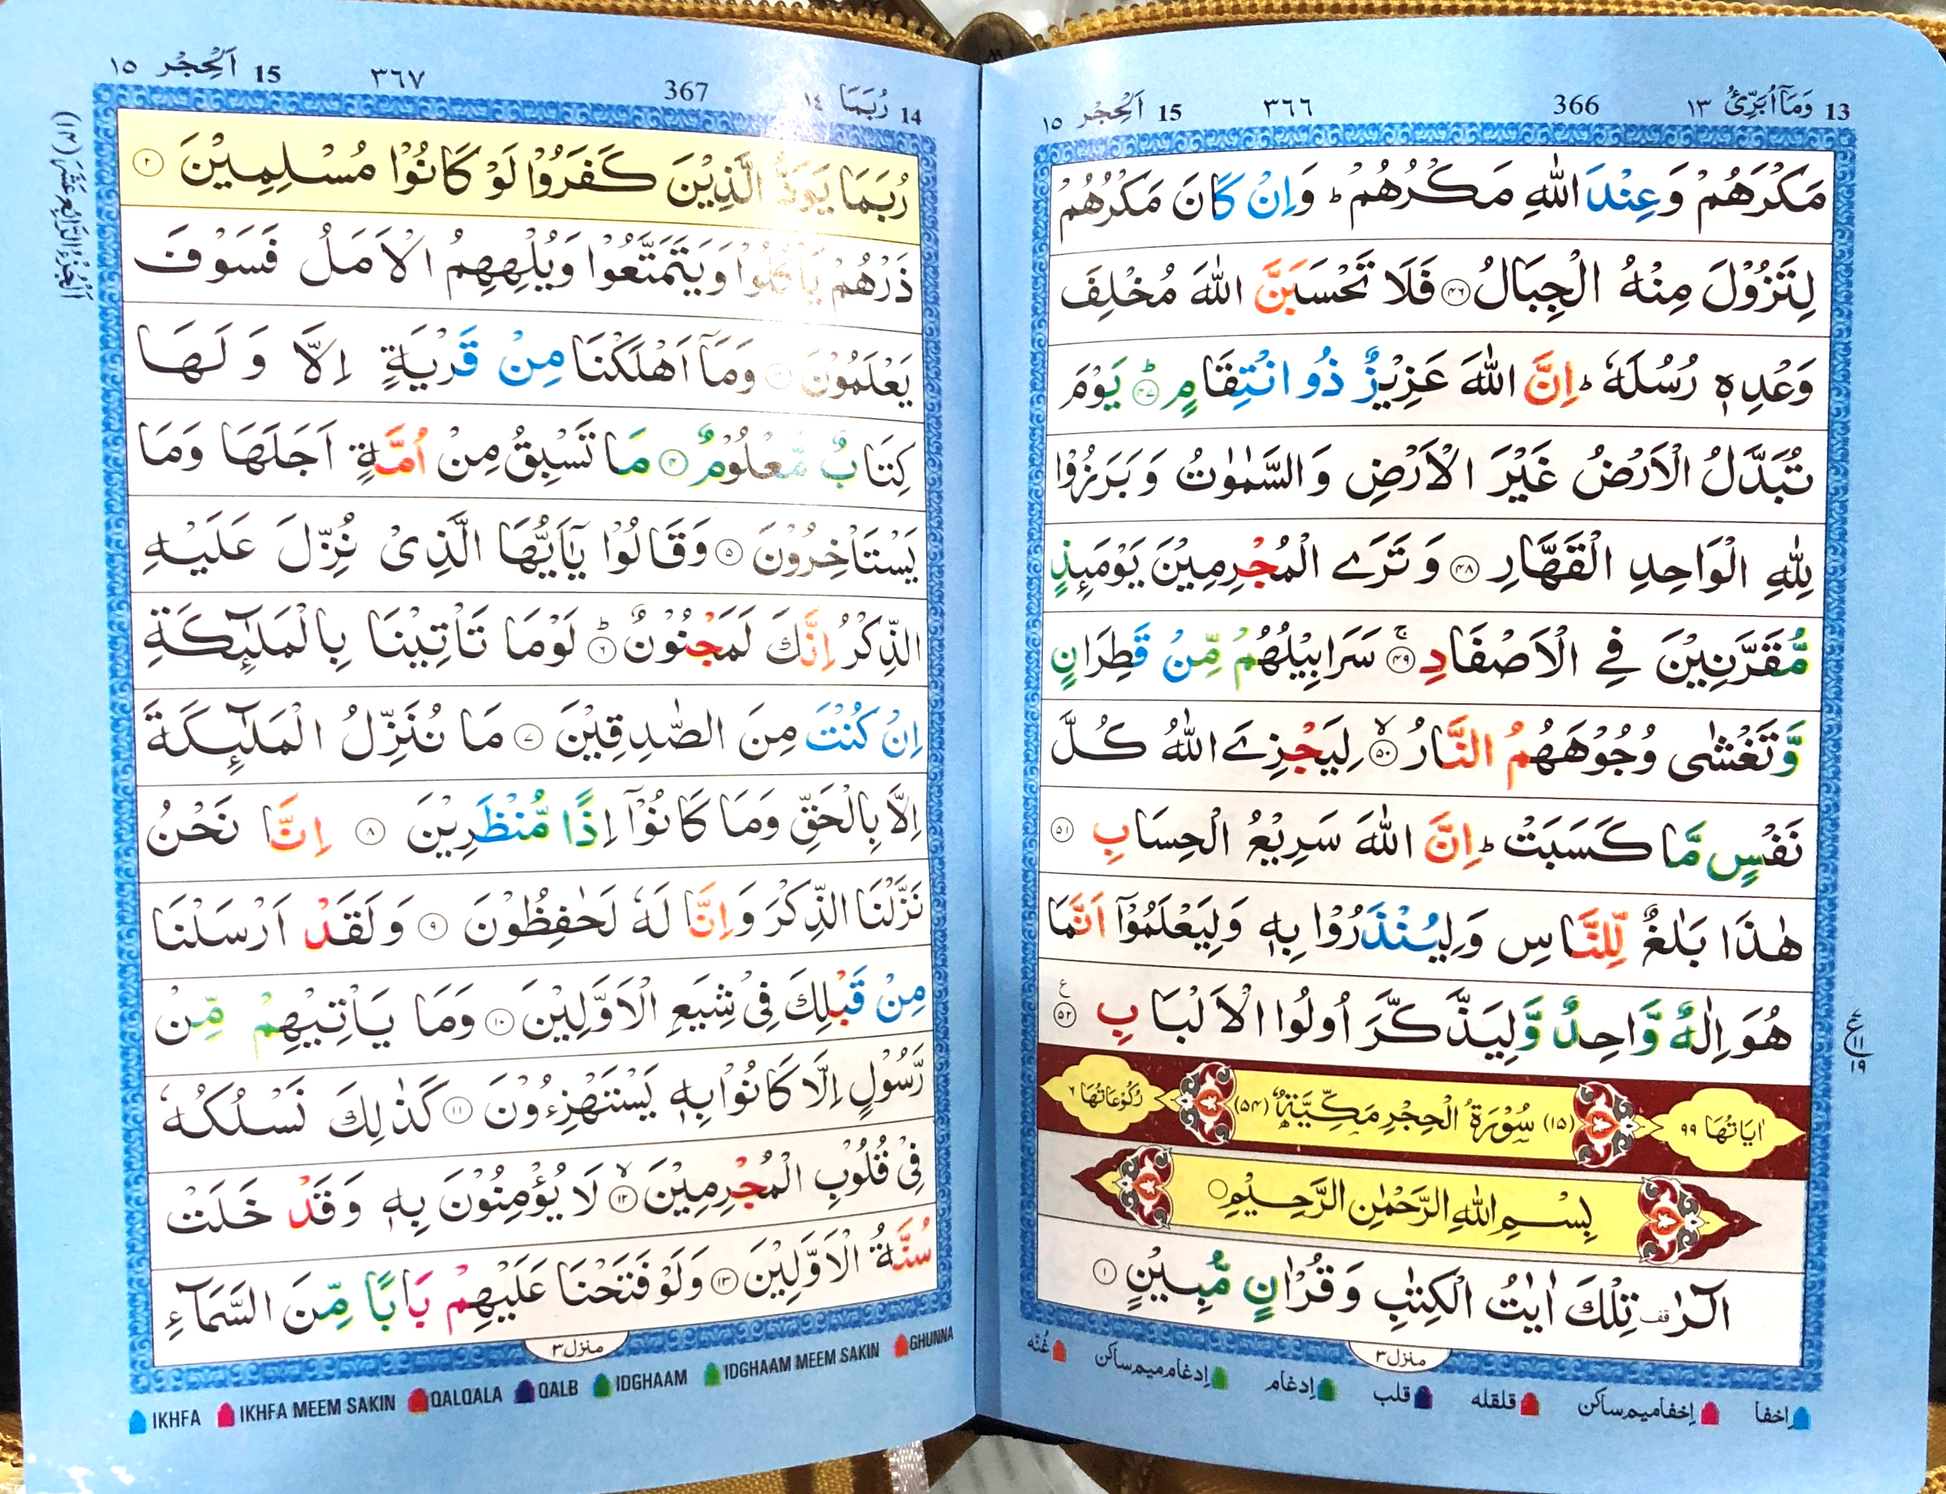 13 وَمَآ اُبَرِّئُ ١٣ 366 ٣٦٦ 15 اَلْحِجْر ١٥
مَكْرَهُمْ وَعِنْدَ اللّٰهِ مَكْرُهُمْ ؕ وَاِنْ كَانَ مَكْرُهُمْ
لِتَزُوْلَ مِنْهُ الْجِبَالُ ۴۶ فَلَا تَحْسَبَنَّ اللّٰهَ مُخْلِفَ
وَعْدِهٖ رُسُلَهٗ ؕ اِنَّ اللّٰهَ عَزِيْزٌ ذُو انْتِقَامٍ ؕ ۴۷ يَوْمَ
تُبَدَّلُ الْاَرْضُ غَيْرَ الْاَرْضِ وَالسَّمٰوٰتُ وَبَرَزُوْا
لِلّٰهِ الْوَاحِدِ الْقَهَّارِ ۴۸ وَتَرَى الْمُجْرِمِيْنَ يَوْمَئِذٍ
مُّقَرَّنِيْنَ فِى الْاَصْفَادِ ۚ ۴۹ سَرَابِيْلُهُمْ مِّنْ قَطِرَانٍ
وَّتَغْشٰى وُجُوْهَهُمُ النَّارُ ۙ ۵۰ لِيَجْزِىَ اللّٰهُ كُلَّ
نَفْسٍ مَّا كَسَبَتْ ؕ اِنَّ اللّٰهَ سَرِيْعُ الْحِسَابِ ۵۱
هٰذَا بَلٰغٌ لِّلنَّاسِ وَلِيُنْذَرُوْا بِهٖ وَلِيَعْلَمُوْٓا اَنَّمَا
هُوَ اِلٰهٌ وَّاحِدٌ وَّلِيَذَّكَّرَ اُولُوا الْاَلْبَابِ ۵۲ ع
ع ١١ ١٩
اٰيَاتُهَا ٩٩ (١٥) سُوْرَةُ الْحِجْرِ مَكِّيَّةٌ (۵۴) رُكُوْعَاتُهَا ٦
بِسْمِ اللّٰهِ الرَّحْمٰنِ الرَّحِيْمِ
الٓرٰ ࣞقف تِلْكَ اٰيٰتُ الْكِتٰبِ وَقُرْاٰنٍ مُّبِيْنٍ ١
منزل ٣
اِخفا اِخفا میم ساکن قلقله قلب اِدغام اِدغام میم ساکن غُنّه
14 رُبَمَا ١٤ 367 ٣٦٧ 15 اَلْحِجْر ١٥
اَلْجُزْءُ الرَّابِعَ عَشَرَ (١٤)
رُبَمَا يَوَدُّ الَّذِيْنَ كَفَرُوْا لَوْ كَانُوْا مُسْلِمِيْنَ ٢
ذَرْهُمْ يَاْكُلُوْا وَيَتَمَتَّعُوْا وَيُلْهِهِمُ الْاَمَلُ فَسَوْفَ
يَعْلَمُوْنَ ٣ وَمَآ اَهْلَكْنَا مِنْ قَرْيَةٍ اِلَّا وَلَهَا
كِتَابٌ مَّعْلُوْمٌ ۴ مَا تَسْبِقُ مِنْ اُمَّةٍ اَجَلَهَا وَمَا
يَسْتَاْخِرُوْنَ ۵ وَقَالُوْا يٰٓاَيُّهَا الَّذِىْ نُزِّلَ عَلَيْهِ
الذِّكْرُ اِنَّكَ لَمَجْنُوْنٌ ؕ ٦ لَوْمَا تَاْتِيْنَا بِالْمَلٰٓئِكَةِ
اِنْ كُنْتَ مِنَ الصّٰدِقِيْنَ ٧ مَا نُنَزِّلُ الْمَلٰٓئِكَةَ
اِلَّا بِالْحَقِّ وَمَا كَانُوْٓا اِذًا مُّنْظَرِيْنَ ٨ اِنَّا نَحْنُ
نَزَّلْنَا الذِّكْرَ وَاِنَّا لَهٗ لَحٰفِظُوْنَ ٩ وَلَقَدْ اَرْسَلْنَا
مِنْ قَبْلِكَ فِىْ شِيَعِ الْاَوَّلِيْنَ ١٠ وَمَا يَاْتِيْهِمْ مِّنْ
رَّسُوْلٍ اِلَّا كَانُوْا بِهٖ يَسْتَهْزِءُوْنَ ١١ كَذٰلِكَ نَسْلُكُهٗ
فِىْ قُلُوْبِ الْمُجْرِمِيْنَ ۙ ١٢ لَا يُؤْمِنُوْنَ بِهٖ وَقَدْ خَلَتْ
سُنَّةُ الْاَوَّلِيْنَ ١٣ وَلَوْ فَتَحْنَا عَلَيْهِمْ بَابًا مِّنَ السَّمَآءِ
منزل ٣
IKHFA IKHFA MEEM SAKIN QALQALA QALB IDGHAAM IDGHAAM MEEM SAKIN GHUNNA